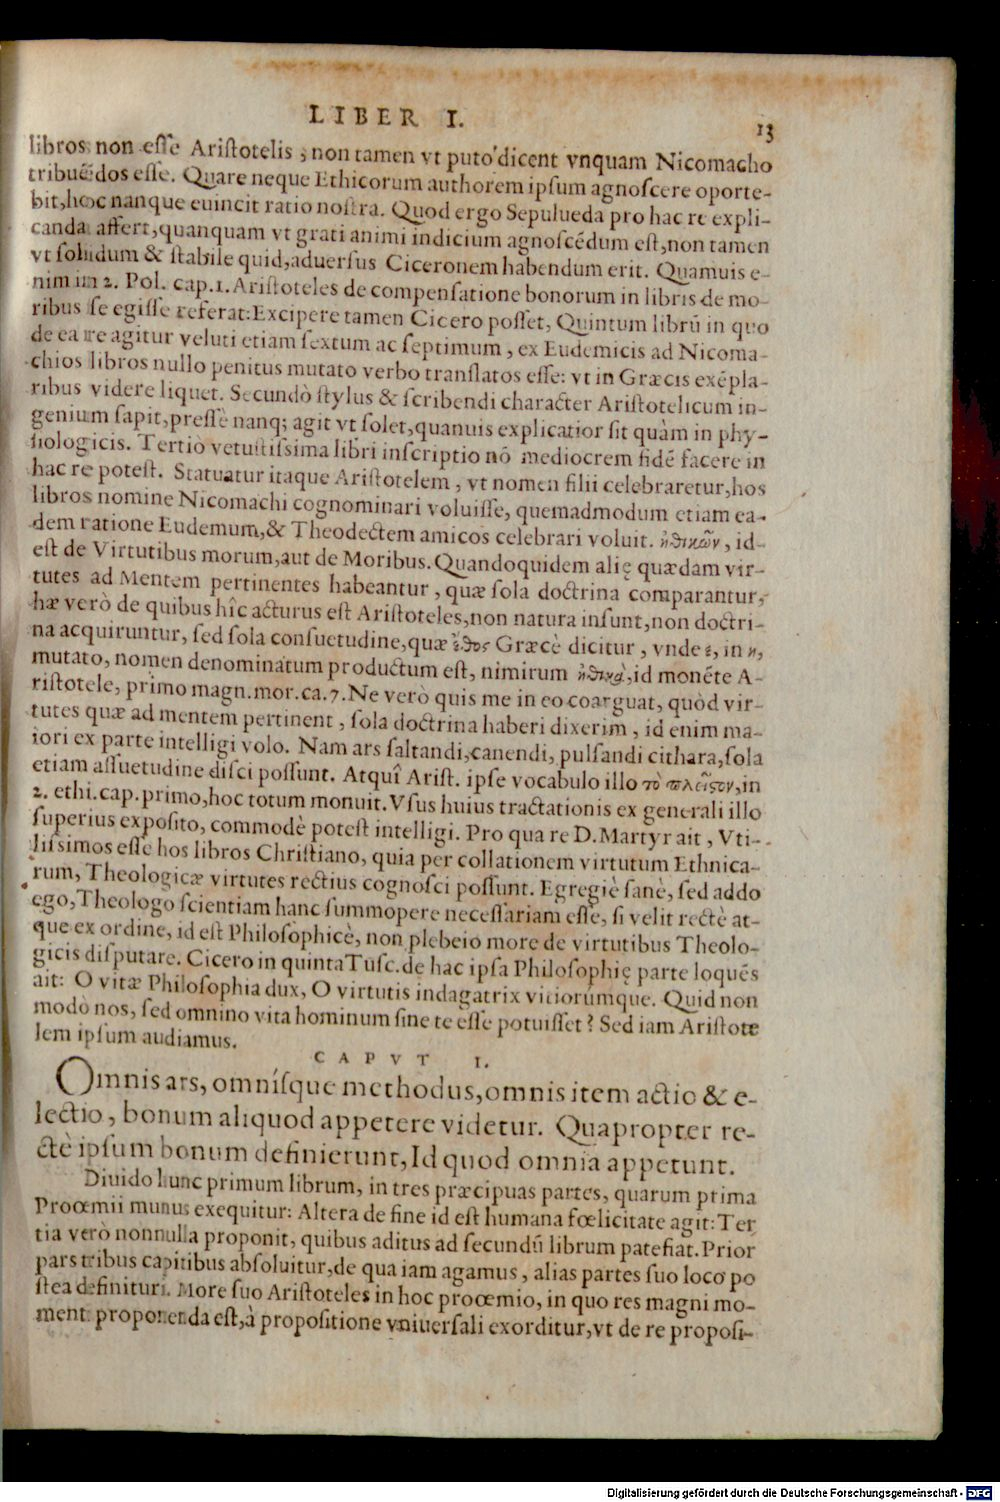 LIBER I. 13
libros non esse Aristotelis, non tamen vt puto dicent vnquam Nicomacho
tribuēdos esse. Quare neque Ethicorum authorem ipsum agnoscere oporte-
bit, hoc nanque euincit ratio nostra. Quod ergo Sepulueda pro hac re expli-
canda affert, quanquam vt grati animi indicium agnoscēdum est, non tamen
vt solidum & stabile quid, aduersus Ciceronem habendum erit. Quamuis e-
nim in 2. Pol. cap. 1. Aristoteles de compensatione bonorum in libris de mo-
ribus se egisse referat: Excipere tamen Cicero posset, Quintum librū in quo
de ea re agitur veluti etiam sextum ac septimum, ex Eudemicis ad Nicoma-
chios libros nullo penitus mutato verbo translatos esse: vt in Græcis exēpla-
ribus videre liquet. Secundò stylus & scribendi character Aristotelicum in-
genium sapit, pressè nanq; agit vt solet, quanuis explicatior sit quàm in phy-
siologicis. Tertiò vetustissima libri inscriptio nō mediocrem fidē facere in
hac re potest. Statuatur itaque Aristotelem, vt nomen filii celebraretur, hos
libros nomine Nicomachi cognominari voluisse, quemadmodum etiam ea-
dem ratione Eudemum, & Theodectem amicos celebrari voluit. ἠθικῶν, id
est de Virtutibus morum, aut de Moribus. Quandoquidem alię quædam vir-
tutes ad Mentem pertinentes habeantur, quæ sola doctrina comparantur,
hæ verò de quibus hîc acturus est Aristoteles, non natura insunt, non doctri-
na acquiruntur, sed sola consuetudine, quæ ἔθος Græcè dicitur, vnde ε, in η,
mutato, nomen denominatum productum est, nimirum ἠθικὰ, id monēte A-
ristotele, primo magn. mor. ca. 7. Ne verò quis me in eo coarguat, quòd vir-
tutes quæ ad mentem pertinent, sola doctrina haberi dixerim, id enim ma-
iori ex parte intelligi volo. Nam ars saltandi, canendi, pulsandi cithara, sola
etiam assuetudine disci possunt. Atquî Arist. ipse vocabulo illo τὸ πλεῖστον, in
2. ethi. cap. primo, hoc totum monuit. Vsus huius tractationis ex generali illo
superius exposito, commodè potest intelligi. Pro qua re D. Martyr ait, Vti-
lissimos esse hos libros Christiano, quia per collationem virtutum Ethnica-
rum, Theologicæ virtutes rectius cognosci possunt. Egregiè sanè, sed addo
ego, Theologo scientiam hanc summopere necessariam esse, si velit rectè at-
que ex ordine, id est Philosophicè, non plebeio more de virtutibus Theolo-
gicis disputare. Cicero in quinta Tusc. de hac ipsa Philosophię parte loquēs
ait: O vitæ Philosophia dux, O virtutis indagatrix vitiorúmque. Quid non
modò nos, sed omnino vita hominum sine te esse potuisset? Sed iam Aristote
lem ipsum audiamus.
CAPVT I.
Omnis ars, omnísque methodus, omnis item actio & e-
lectio, bonum aliquod appetere videtur. Quapropter re-
ctè ipsum bonum definierunt, Id quod omnia appetunt.
Diuido hunc primum librum, in tres præcipuas partes, quarum prima
Prooemii munus exequitur: Altera de fine id est humana fœlicitate agit: Ter
tia verò nonnulla proponit, quibus aditus ad secundū librum patefiat. Prior
pars tribus capitibus absoluitur, de qua iam agamus, alias partes suo loco po
stea definituri. More suo Aristoteles in hoc prooemio, in quo res magni mo-
menti proponenda est, à propositione vniuersali exorditur, vt de re proposi-
Digitalisierung gefördert durch die Deutsche Forschungsgemeinschaft - DFG